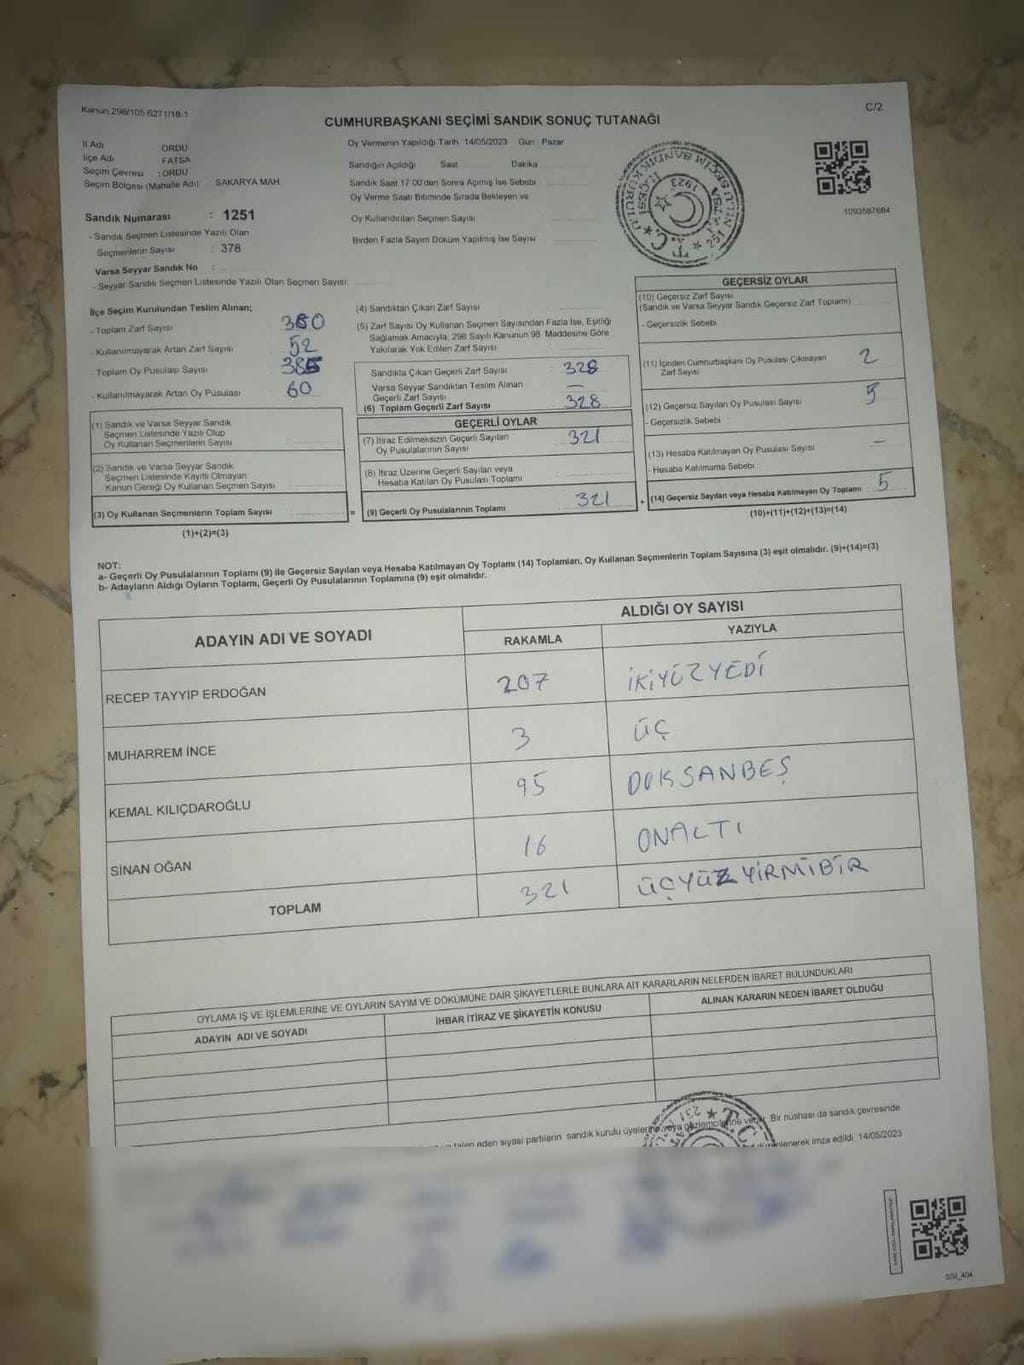 Kanun:298/105 6271/18-1
C/2
CUMHURBAŞKANI SEÇİMİ SANDIK SONUÇ TUTANAĞI
İl Adı : ORDU
İlçe Adı : FATSA
Seçim Çevresi : ORDU
Seçim Bölgesi (Mahalle Adı) SAKARYA MAH.
Sandık Numarası : 1251
- Sandık Seçmen Listesinde Yazılı Olan
Seçmenlerin Sayısı : 378
Varsa Seyyar Sandık No :
- Seyyar Sandık Seçmen Listesinde Yazılı Olan Seçmen Sayısı:
Oy Vermenin Yapıldığı Tarih 14/05/2023 Gün : Pazar
Sandığın Açıldığı Saat Dakika
Sandık Saat 17:00'den Sonra Açılmış İse Sebebi
Oy Verme Saati Bitiminde Sırada Bekleyen ve
Oy Kullandırılan Seçmen Sayısı
Birden Fazla Sayım Döküm Yapılmış İse Sayısı
1093587684
İlçe Seçim Kurulundan Teslim Alınan;
- Toplam Zarf Sayısı 380
- Kullanılmayarak Artan Zarf Sayısı 52
- Toplam Oy Pusulası Sayısı
- Kullanılmayarak Artan Oy Pusulası 60
(1) Sandık ve Varsa Seyyar Sandık
Seçmen Listesinde Yazılı Olup
Oy Kullanan Seçmenlerin Sayısı
(2) Sandık ve Varsa Seyyar Sandık
Seçmen Listesinde Kayıtlı Olmayan
Kanun Gereği Oy Kullanan Seçmen Sayısı
(3) Oy Kullanan Seçmenlerin Toplam Sayısı =
(1)+(2)=(3)
(4) Sandıktan Çıkan Zarf Sayısı
(5) Zarf Sayısı Oy Kullanan Seçmen Sayısından Fazla İse, Eşitliği
Sağlamak Amacıyla; 298 Sayılı Kanunun 98. Maddesine Göre
Yakılarak Yok Edilen Zarf Sayısı
Sandıkta Çıkan Geçerli Zarf Sayısı 328
Varsa Seyyar Sandıktan Teslim Alınan
Geçerli Zarf Sayısı —
(6) Toplam Geçerli Zarf Sayısı 328
GEÇERLİ OYLAR
(7) İtiraz Edilmeksizin Geçerli Sayılan
Oy Pusulalarının Sayısı 321
(8) İtiraz Üzerine Geçerli Sayılan veya
Hesaba Katılan Oy Pusulası Toplamı
(9) Geçerli Oy Pusulalarının Toplamı 321 +
GEÇERSİZ OYLAR
(10) Geçersiz Zarf Sayısı
(Sandık ve Varsa Seyyar Sandık Geçersiz Zarf Toplamı)
- Geçersizlik Sebebi
(11) İçinden Cumhurbaşkanı Oy Pusulası Çıkmayan
Zarf Sayısı 2
(12) Geçersiz Sayılan Oy Pusulası Sayısı 5
- Geçersizlik Sebebi
(13) Hesaba Katılmayan Oy Pusulası Sayısı —
- Hesaba Katılmama Sebebi
(14) Geçersiz Sayılan veya Hesaba Katılmayan Oy Toplamı 5
(10)+(11)+(12)+(13)=(14)
NOT:
a- Geçerli Oy Pusulalarının Toplamı (9) ile Geçersiz Sayılan veya Hesaba Katılmayan Oy Toplamı (14) Toplamları, Oy Kullanan Seçmenlerin Toplam Sayısına (3) eşit olmalıdır. (9)+(14)=(3)
b- Adayların Aldığı Oyların Toplamı, Geçerli Oy Pusulalarının Toplamına (9) eşit olmalıdır.
ADAYIN ADI VE SOYADI
ALDIĞI OY SAYISI
RAKAMLA YAZIYLA
RECEP TAYYİP ERDOĞAN 207 İKİYÜZYEDİ
MUHARREM İNCE 3 ÜÇ
KEMAL KILIÇDAROĞLU 95 DOKSANBEŞ
SİNAN OĞAN 16 ONALTI
TOPLAM 321 ÜÇYÜZYİRMİBİR
OYLAMA İŞ VE İŞLEMLERİNE VE OYLARIN SAYIM VE DÖKÜMÜNE DAİR ŞİKAYETLERLE BUNLARA AİT KARARLARIN NELERDEN İBARET BULUNDUKLARI
ADAYIN ADI VE SOYADI İHBAR İTİRAZ VE ŞİKAYETİN KONUSU ALINAN KARARIN NEDEN İBARET OLDUĞU
talep eden siyasi partilerin sandık kurulu üyelerine veya gözlemcilerine Bir nüshası da sandık çevresinde
imza edildi. 14/05/2023